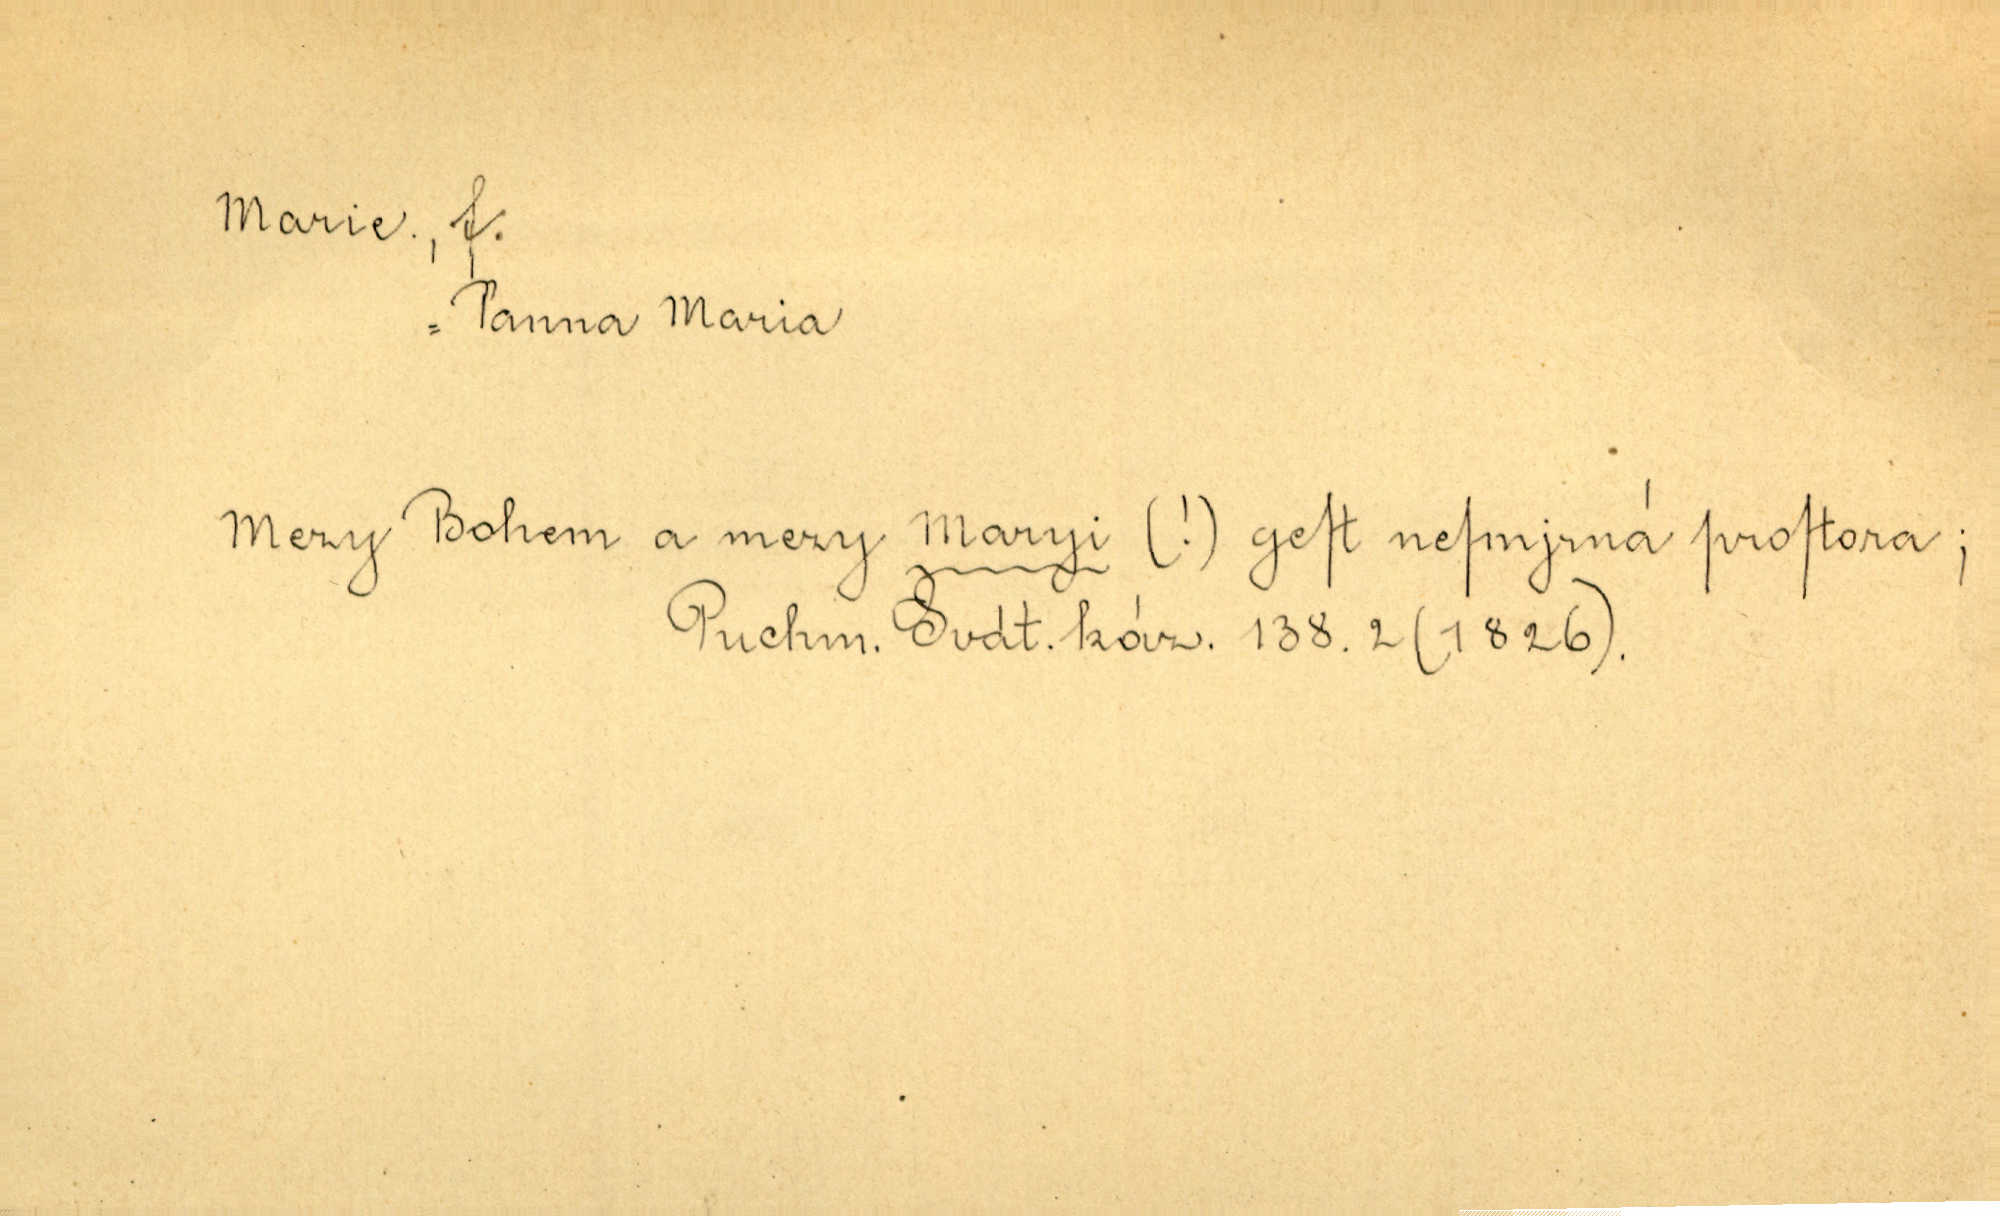 Marie., f.
= Panna Maria
Mezy Bohem a mezy Maryi (!) geſt neſmjrná proſtora;
Puchm. Svát. káz. 138. 2 (1826).